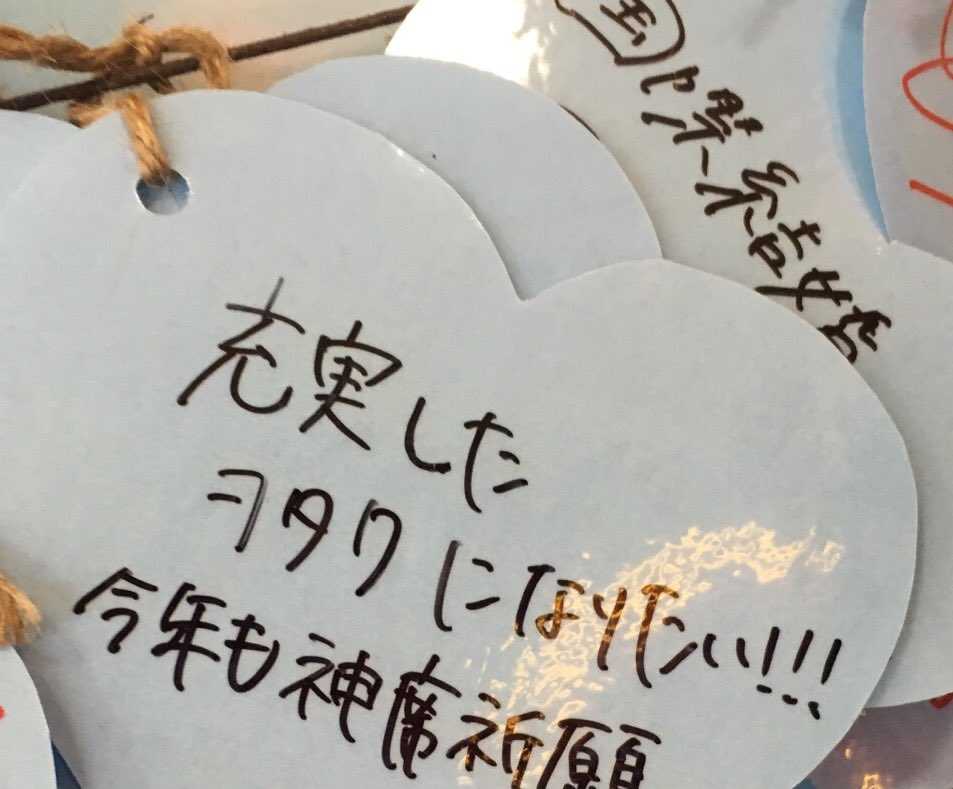 国際結婚
充実した
ヲタクになりたい!!!
今年も神席祈願